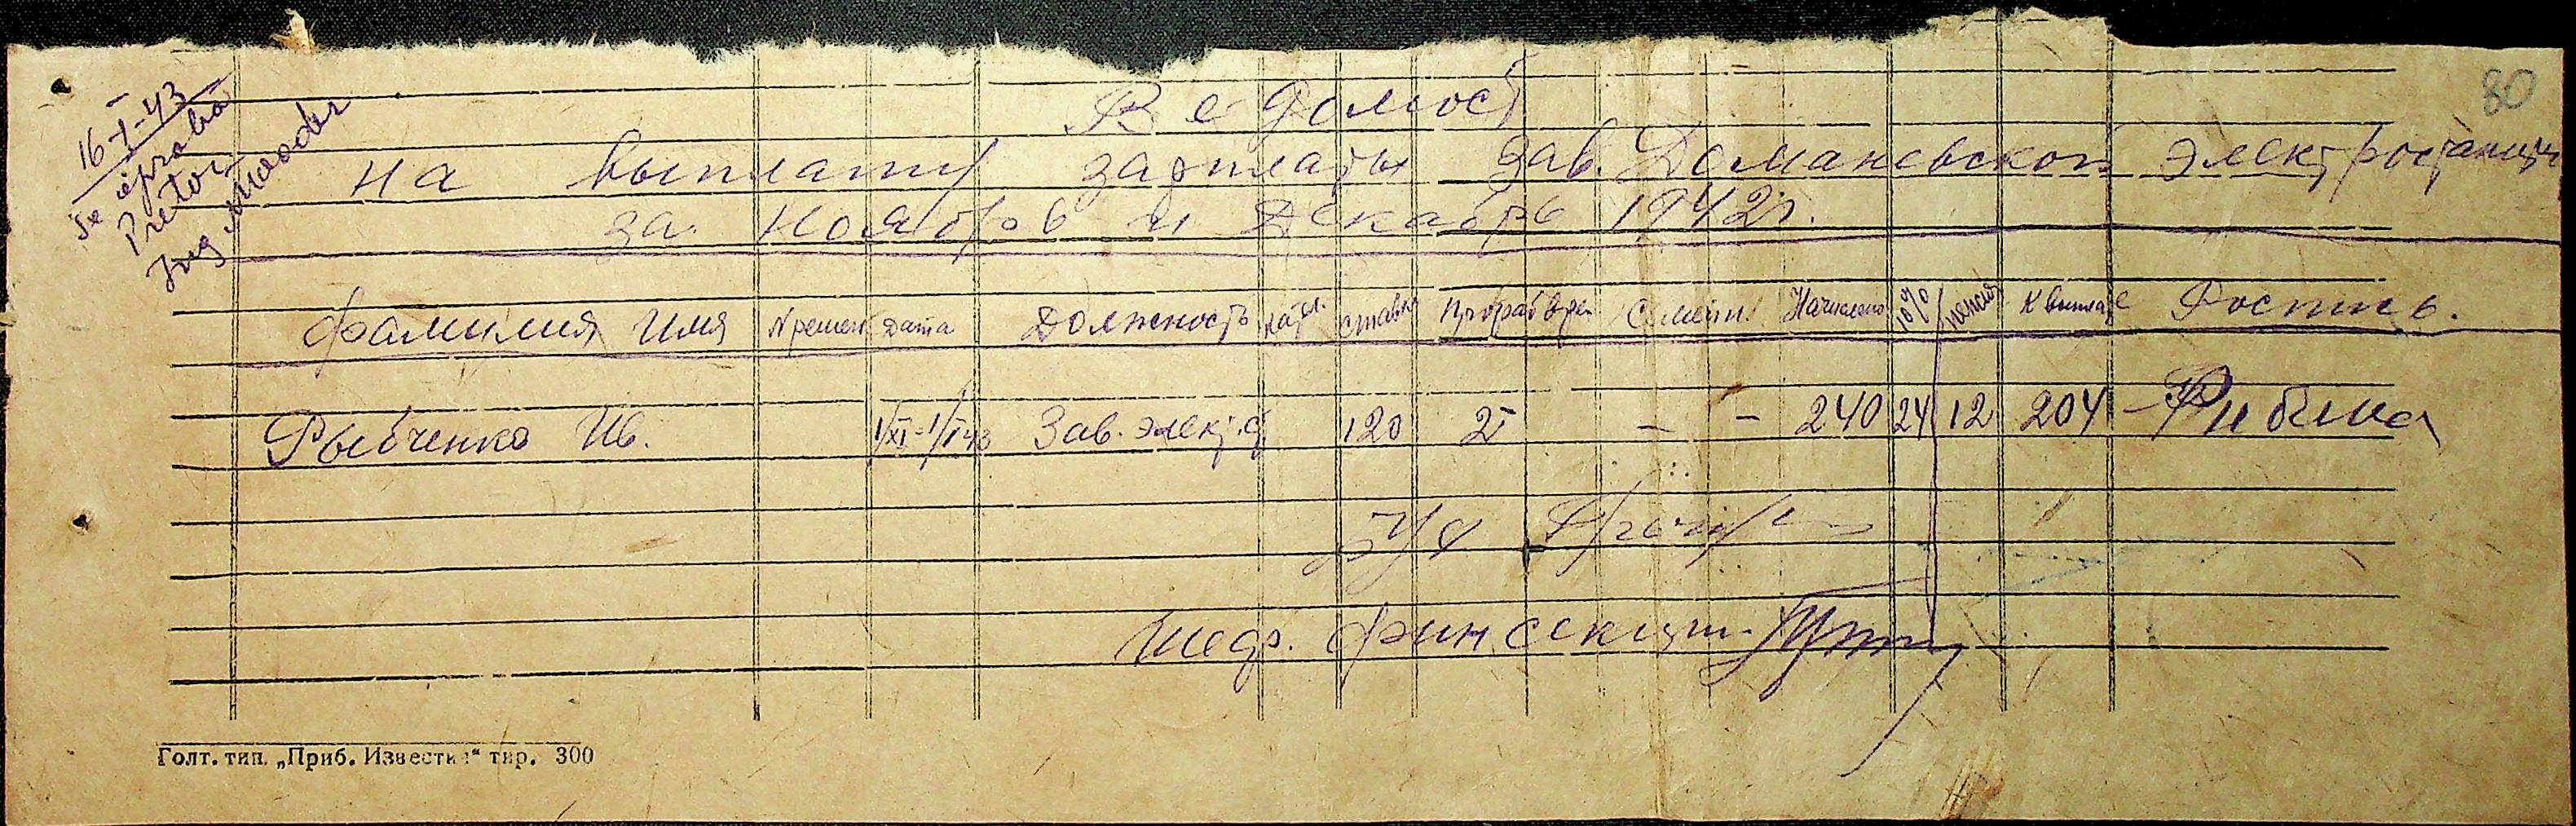 80
16-I-43
Se aproba
Pretor
Ing.
Ведомость
на выплату зарплаты зав. Доманевской электростанци
за Ноябрь и Декабрь 1942г.
Фамилия Имя N решен Дата Должность кат. ставк Прораб Вре Начислено 10% пенсия к выплате Роспись.
Рыбченко Ив. 1/XI-1/I 43 Зав. элект. с 120 2 - - 240 24 12 204 -
Бух
Шеф. финсекции
Голт. тип. „Приб. Известия“ тир. 300